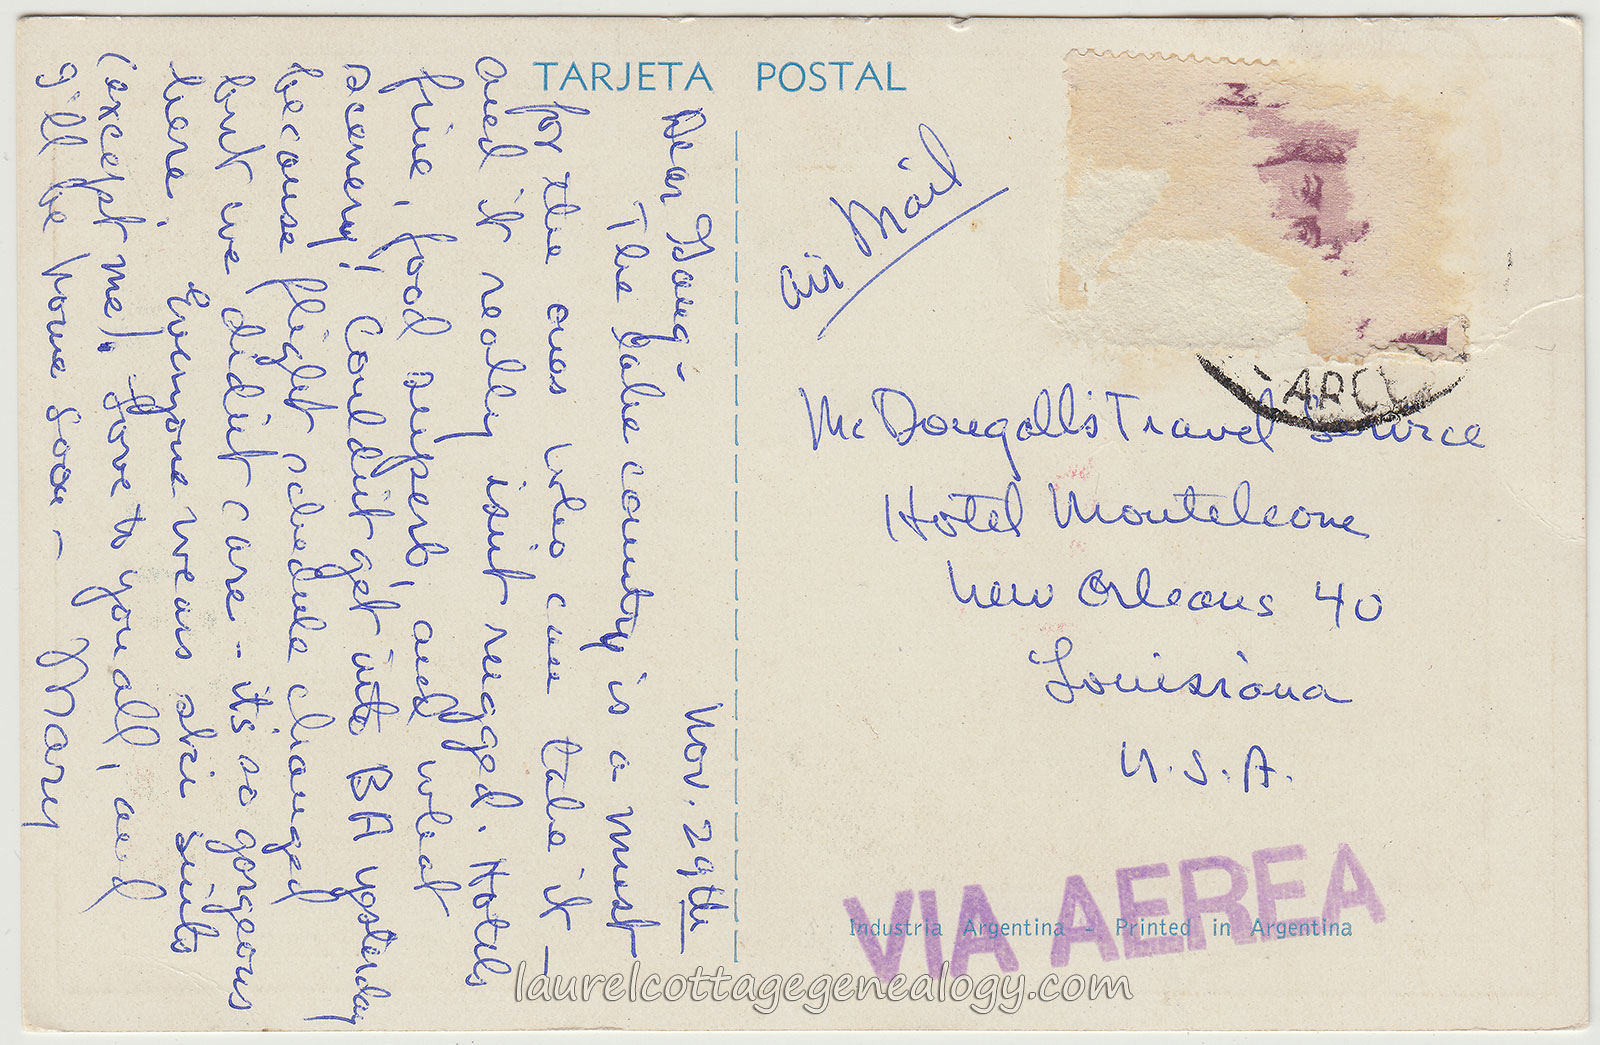 TARJETA POSTAL
Nov. 29th
Dear Gang -
The lake country is a must
for the ones who can take it -
and it really isn't rugged. Hotels
fine, food superb, and what
scenery! Couldn't get into BA yesterday
because flight schedule changed
but we didn't care - it's so gorgeous
here. Everyone wears ski suits
(except me). Love to you all, and
I'll be home soon - Mary
Air Mail
ARCE
McDougall's Travel Service
Hotel Monteleone
New Orleans 40
Louisiana
U.S.A.
VIA AEREA
Industria Argentina - Printed in Argentina
laurelcottagegenealogy.com